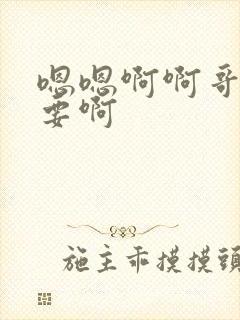 嗯嗯啊啊哥
要啊
施主乖摸摸頭